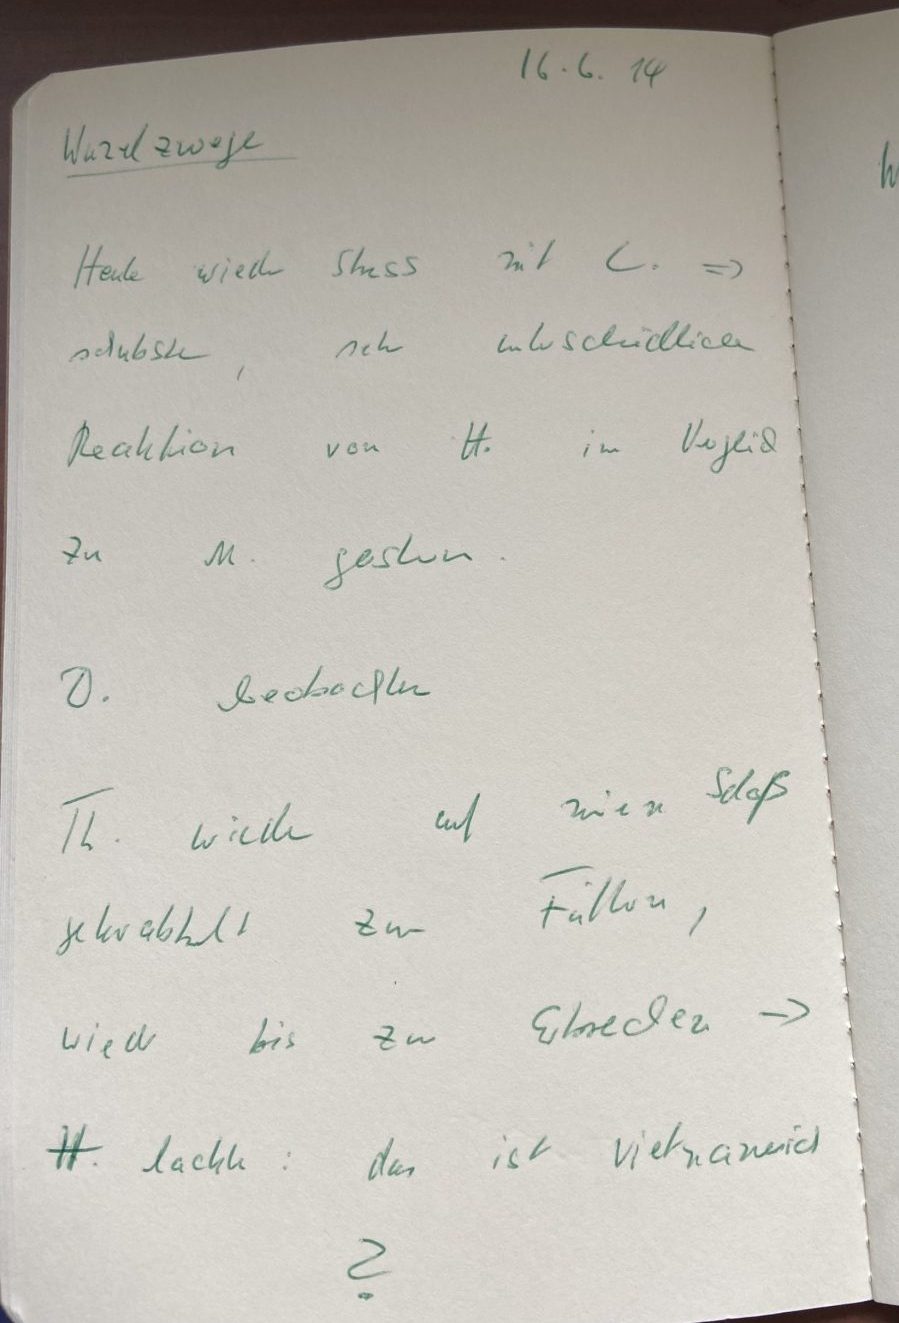 16.6.14
Wurzelzwerge
Heute wieder Stress mit C. =>
schubste, sehr unterschiedlichen
Reaktion von H. im Vergleich
zu M. gestern.
D. beobachten
Th. wieder auf meinen Schoß
gekrabbelt zum Füttern,
wieder bis zum Erbrechen ->
H. lachte: das ist vietnamesisch
?